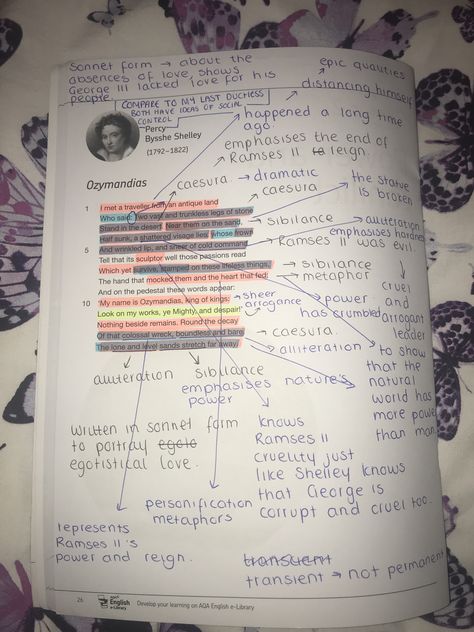 Sonnet form → about the
absences of love, shows
George III lacked love for his
people
epic qualities
distancing himself
COMPARE TO MY LAST DUCHESS
BOTH HAVE IDEAS OF SOCIAL
CONTROL
happened a long time
ago.
Percy
Bysshe Shelley
(1792–1822)
emphasises the end of
Ramses II reign.
Ozymandias
caesura. → dramatic
caesura
the statue
is broken
1 I met a traveller from an antique land
Who said: Two vast and trunkless legs of stone
Stand in the desert. Near them on the sand,
Half sunk, a shattered visage lies, whose frown
5 And wrinkled lip, and sneer of cold command
Tell that its sculptor well those passions read
Which yet survive, stamped on these lifeless things,
The hand that mocked them and the heart that fed;
And on the pedestal these words appear:
10 'My name is Ozymandias, king of kings:
Look on my works, ye Mighty, and despair!'
Nothing beside remains. Round the decay
Of that colossal wreck, boundless and bare
The lone and level sands stretch far away.
sibilance → alliteration
emphasises
Ramses II was evil.
sibilance
metaphor
cruel
and
arrogant
leader
sheer
arrogance
power
has crumbled
caesura.
alliteration
to show
that the
natural
world has
more power
than man
alliteration
sibilance
emphasises nature's
power
Written in sonnet form
to portray
egotistical love.
knows
Ramses II
cruelity just
like Shelley knows
that George is
corrupt and cruel too.
personification
metaphors
represents
Ramses II's
power and reign.
transient
transient → not permanent
26 AQA English e-Library Develop your learning on AQA English e-Library